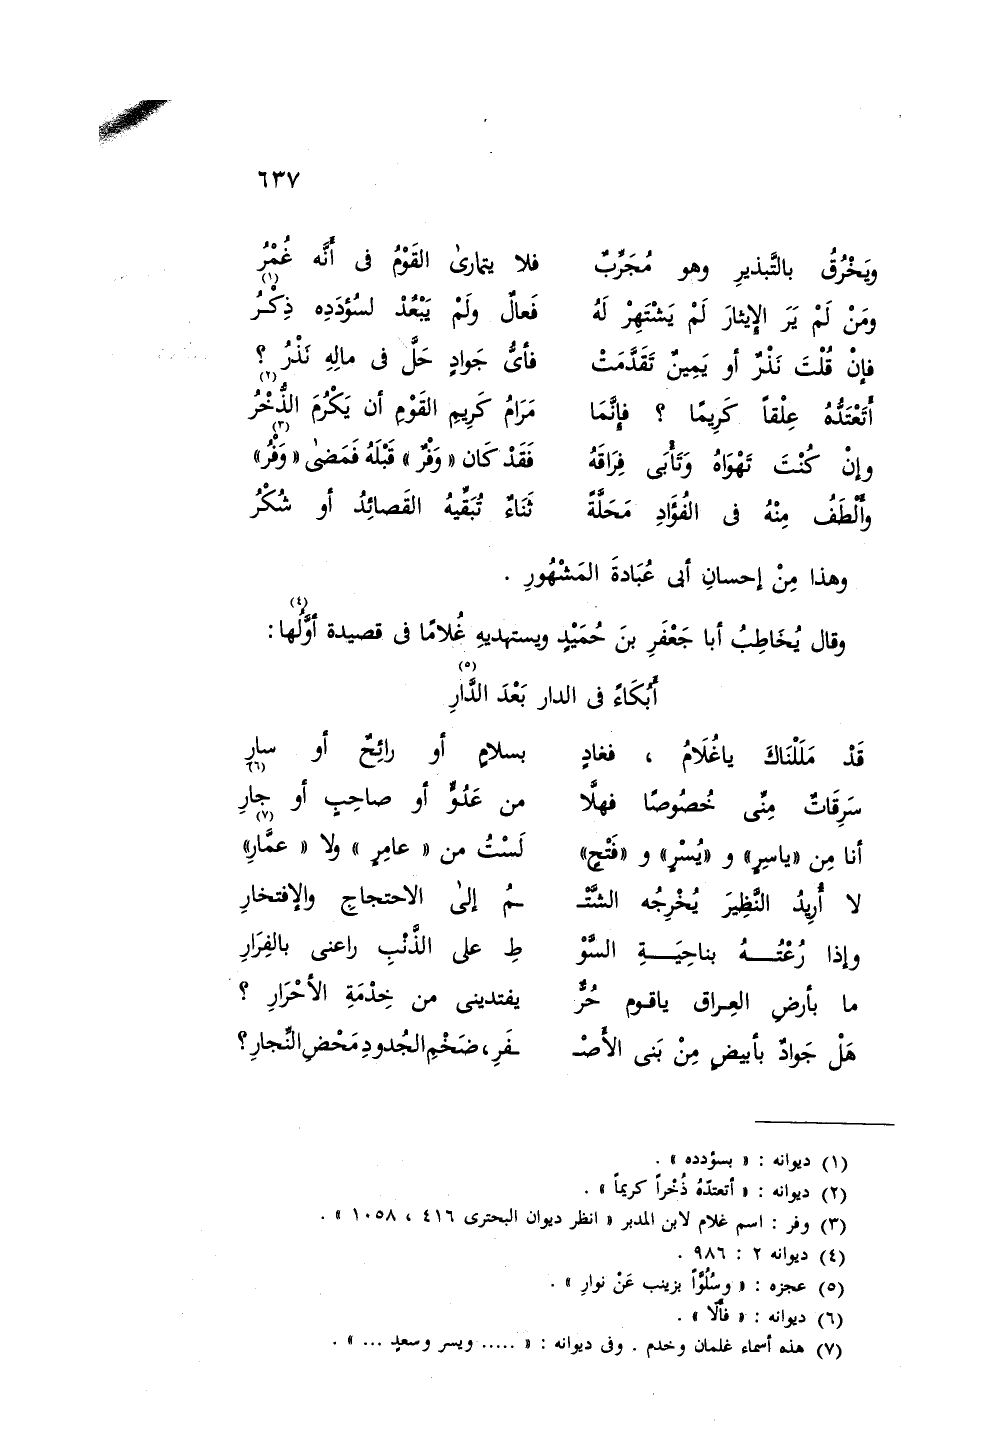 ٦٣٧
ويَخْرُقُ بالتَّبذيرِ وهو مُجَرِّبٌ فلا يتمارىٰ القَوْمُ فى أَنَّه غُمْرُ
ومَنْ لَمْ يَرَ الإيثارَ لَمْ يَشْتَهِرْ لَهُ فَعالٌ ولَمْ يَبْعُدْ لسُؤدَدِه ذِكْرُ (١)
فإنْ قُلْتَ نَذْرٌ أو يَمِينٌ تَقَدَّمَتْ فأىُّ جَوادٍ حَلَّ فى مالِهِ نَذْرُ ؟
أَتَعْتَدُّهُ عِلْقاً كَرِيمًا ؟ فإنَّمَا مَرَامُ كَرِيمِ القَوْمِ أن يَكْرُمَ الذُّخْرُ (٢)
وإنْ كُنْتَ تَهْوَاهُ وَتَأْبَى فِرَاقَهُ فَقَدْ كَان « وَفْرٌ » قَبْلَهُ فَمَضىٰ « وَفْرُ » (٣)
وأَلْطَفُ مِنْهُ فى الفُؤَادِ مَحَلَّةً ثَنَاءٌ تُبَقِّيهُ القَصائِدُ أو شُكْرُ
وهذا مِنْ إحسانِ أبى عُبَادةَ المَشْهُورِ .
وقال يُخَاطِبُ أبا جَعْفَرِ بنَ حُمَيْدٍ ويستهديهِ غُلامًا فى قصيدة أوَّلُها (٤) :
أَبُكَاءً فى الدار بَعْدَ الدَّارِ (٥)
قَدْ مَلَلْنَاكَ ياغُلَامُ ، فغادٍ بسلامٍ أو رائِحٌ أو سارِ
سَرِقَاتٌ مِنِّى خُصُوصًا فهلَّا من عَدُوٍّ أو صاحِبٍ أو جارِ (٦)
أنا مِن «ياسِرٍ» و «يُسْرٍ» و «فَتْحٍ» لَسْتُ من « عامِرٍ » ولا « عمَّارِ» (٧)
لا أُرِيدُ النَّظِيرَ يُخْرِجُه الشَّتْـ ـمُ إلىٰ الاحتجاجِ والإفتخارِ
وإذا رُعْتُــــهُ بناحِيَــــةِ السَّوْ طِ على الذَّنْبِ راعنى بالفِرَارِ
ما بأرضِ العِراق ياقوم حُرٌّ يفتدينى من خِدْمَةِ الأحْرَارِ ؟
هَلْ جَوادٌ بأبيضٍ مِنْ بَنى الأَصْـ ـفَرِ ، ضَخْمِ الجُدودِ مَحْضِ النِّجارِ ؟
(١) ديوانه : « بسؤدده » .
(٢) ديوانه : « أتعتدّهُ ذُخْراً كريماً » .
(٣) وفر : اسم غلام لابن المدبر « انظر ديوان البحترى ٤١٦ ، ١٠٥٨ » .
(٤) ديوانه ٢ : ٩٨٦ .
(٥) عجزه : « وسُلُوًّا بزينب عَنْ نوارِ » .
(٦) ديوانه : « فألّا » .
(٧) هذه أسماء غلمان وخدم . وفى ديوانه : « ..... ويسر وسعدٍ ... » .